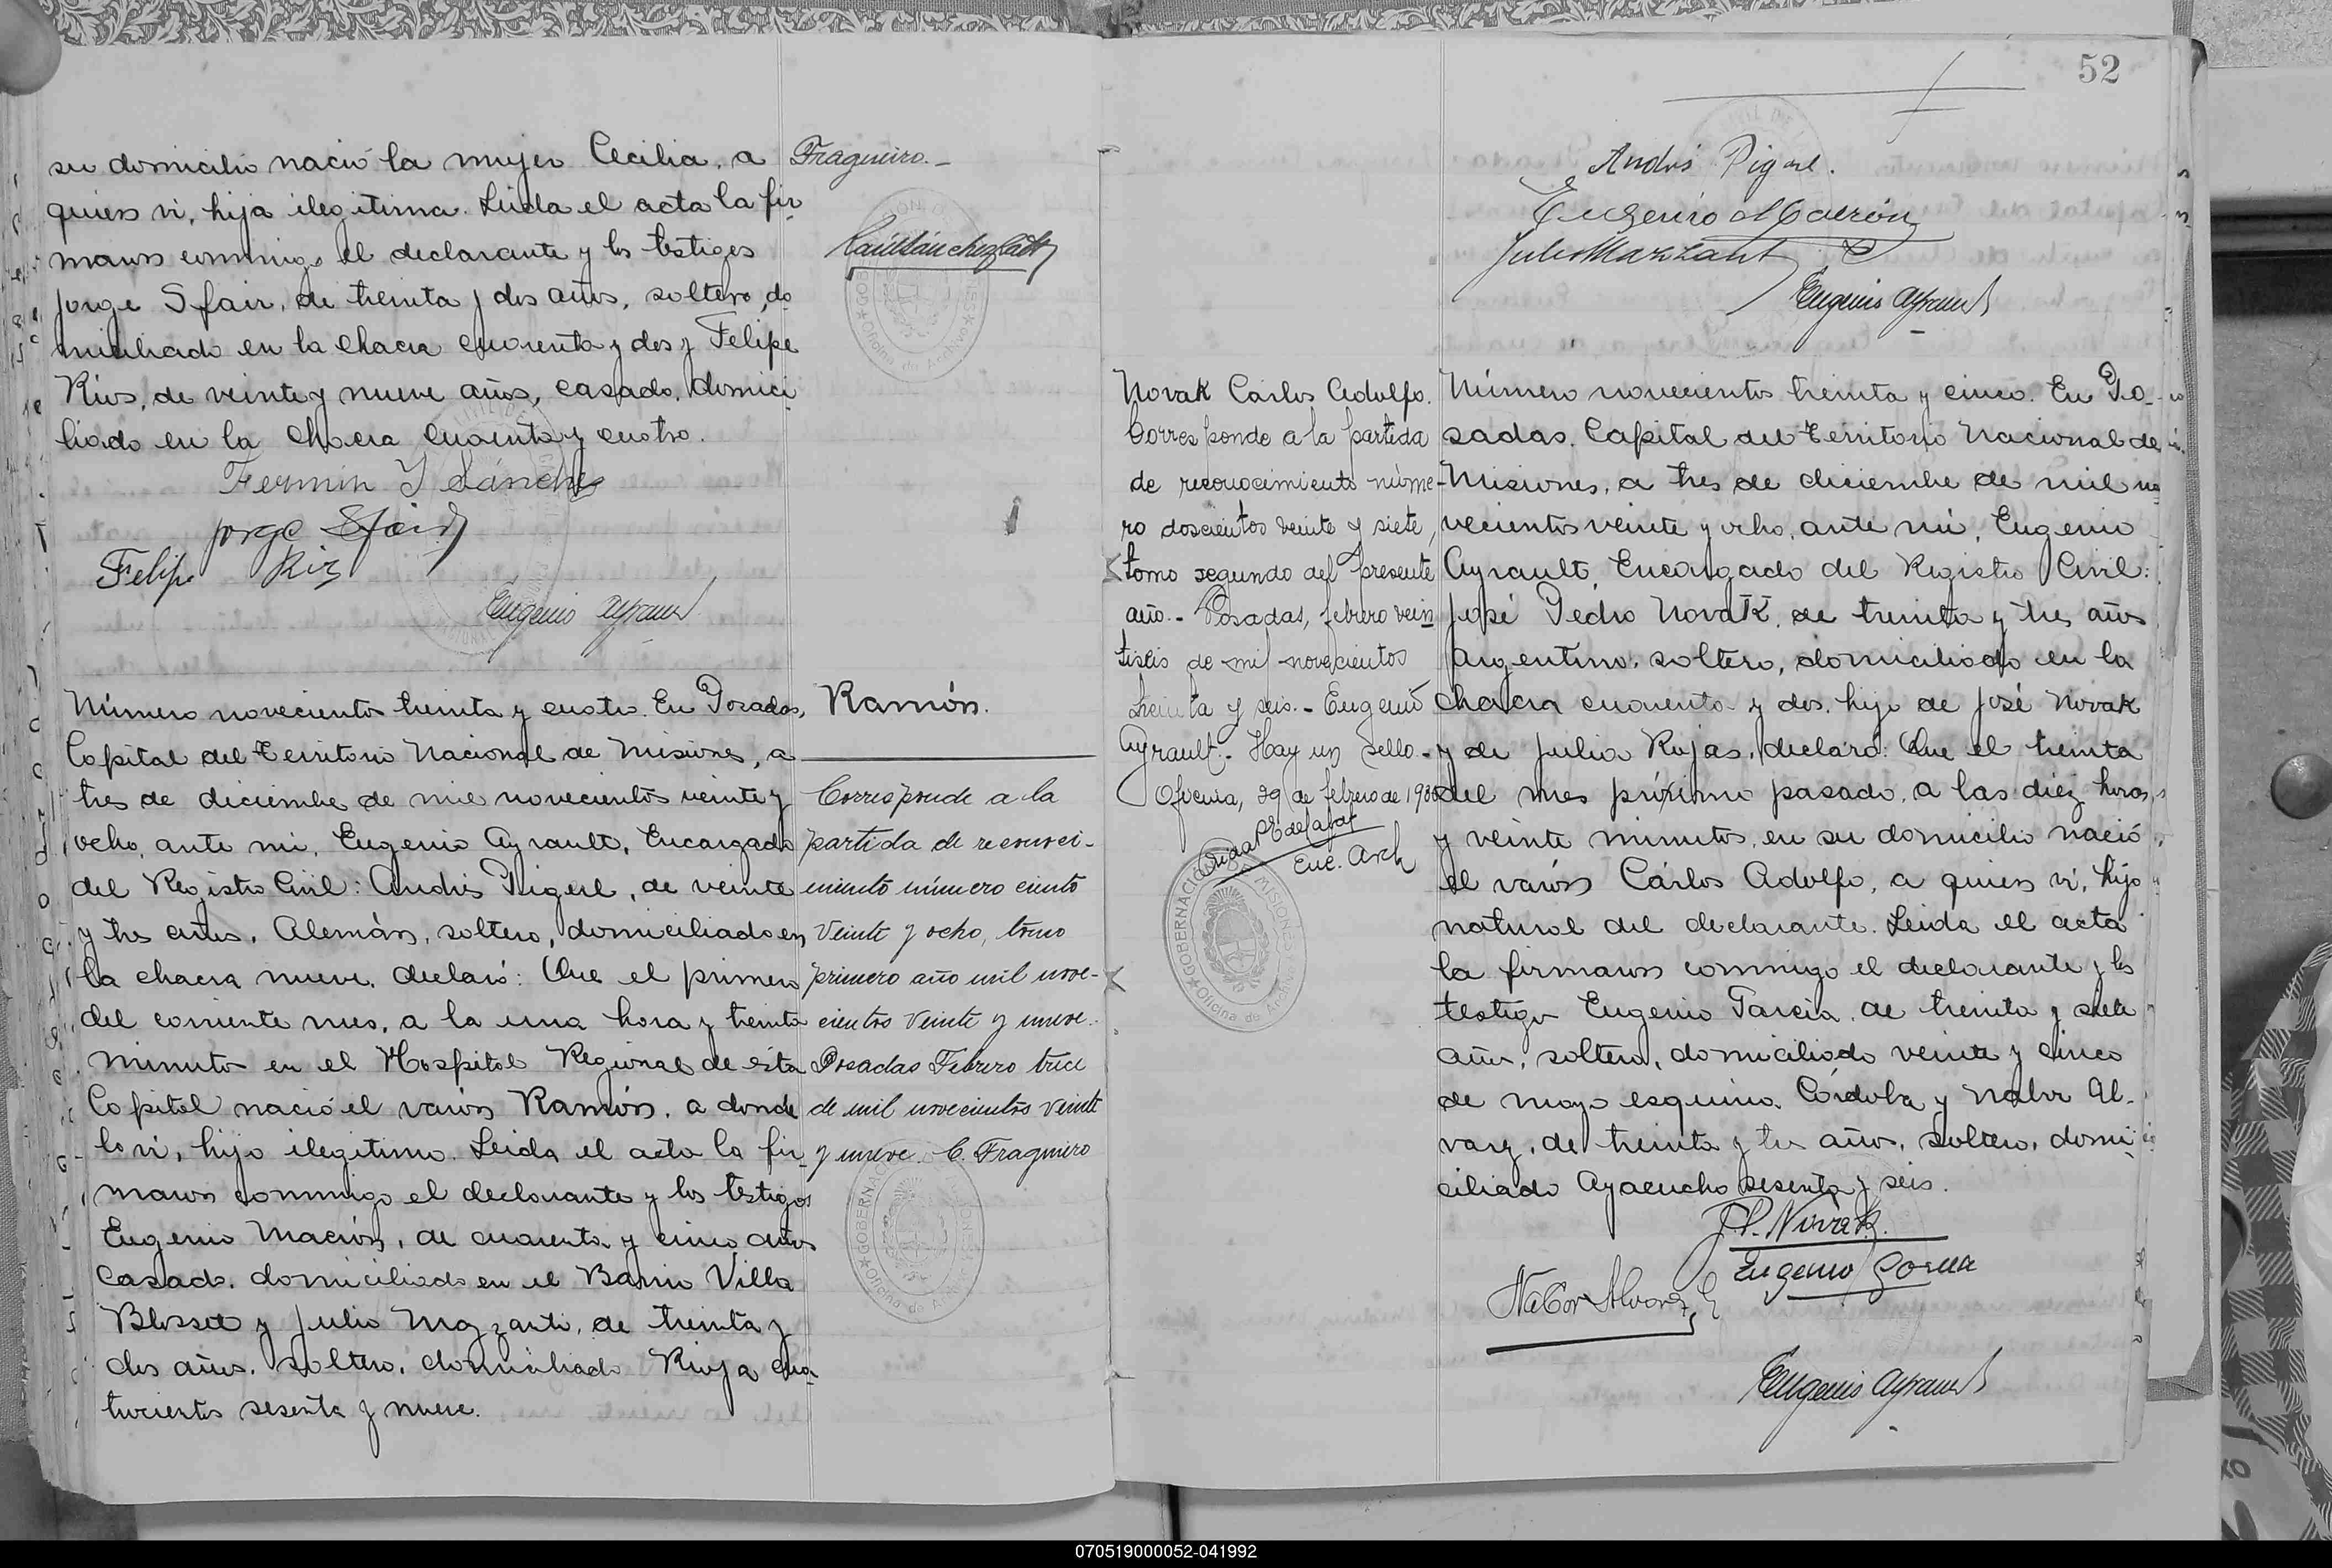 su domicilio nació la mujer Cecilia, a
quien vi, hija ilegitima. Leida el acta la fir-
maron conmigo el declarante y los testigos
Jorge Sfair, de treinta y dos años, soltero, do-
miciliado en la chacra cuarenta y dos y Felipe
Rios, de veinte y nueve años, casado, domici-
liado en la chacra cuarenta y cuatro.
Fermin Y Sánchez
Jorge Sfair
Felipe Rios
Eugenio Ayrault
Fragueiro.-
Número novecientos treinta y cuatro. En Posadas,
Capital del Territorio Nacional de Misiones, a
tres de diciembre de mil novecientos veinte y
ocho, ante mi, Eugenio Ayrault, Encargado
del Registro Civil: Andrés Pigerl, de veinte
y tres años, Alemán, soltero, domiciliado en
la chacra nueve, declaró: Que el primero
del corriente mes, a la una hora y treinta
minutos en el Hospital Regional de esta
Capital nació el varón Ramón, a donde
lo vi, hijo ilegitimo. Leida el acta la fir-
maron conmigo el declarante y los testigos
Eugenio Mación, de cuarenta y cinco años
casado, domiciliado en el Barrio Villa
Blosset y Julio Mazzanti, de treinta y
dos años, soltero, domiciliado Rioja cua-
trocientos sesenta y nueve.
Ramón.
Corresponde a la
partida de reconoci-
miento número ciento
veinte y ocho, tomo
primero año mil nove-
cientos veinte y nueve.
Posadas Febrero trece
de mil novecientos veinte
y nueve. C. Fragueiro
52
Andrés Pigerl.
Eugenio Macrión
Julio Mazzanti
Eugenio Ayrault
Novak Carlos Adolfo.
Corresponde a la partida
de reconocimiento núme-
ro doscientos veinte y siete,
tomo segundo del presente
año.- Posadas, febrero vein
tiseis de mil novecientos
treinta y seis.- Eugenio
Ayrault.- Hay un sello.-
Oficina, 29 de febrero de 1936
Enc. Arch
GOBERNACION MISIONES
Oficina de Archivo
Número novecientos treinta y cinco. En Po-
sadas, Capital del Territorio Nacional de
Misiones, a tres de diciembre de mil no-
vecientos veinte y ocho, ante mi, Eugenio
Ayrault, Encargado del Registro Civil:
José Pedro Novak, de treinta y tres años
argentino, soltero, domiciliado en la
chacra cuarenta y dos, hijo de José Novak
y de Julia Rojas, declaró: Que el treinta
del mes próximo pasado, a las diez horas
y veinte minutos, en su domicilio nació
el varón Cárlos Adolfo, a quien vi, hijo
natural del declarante. Leida el acta
la firmaron conmigo el declarante y los
testigos Eugenio Garcia, de treinta y siete
años, soltero, domiciliado veinte y cinco
de mayo esquina Córdoba y Nabor Al-
varez, de treinta y tres años, soltero, domi-
ciliado Ayacucho sesenta y seis.
J. P. Novak.
Eugenio Garcia
Nabor Alvarez
Eugenio Ayrault
070519000052-041992